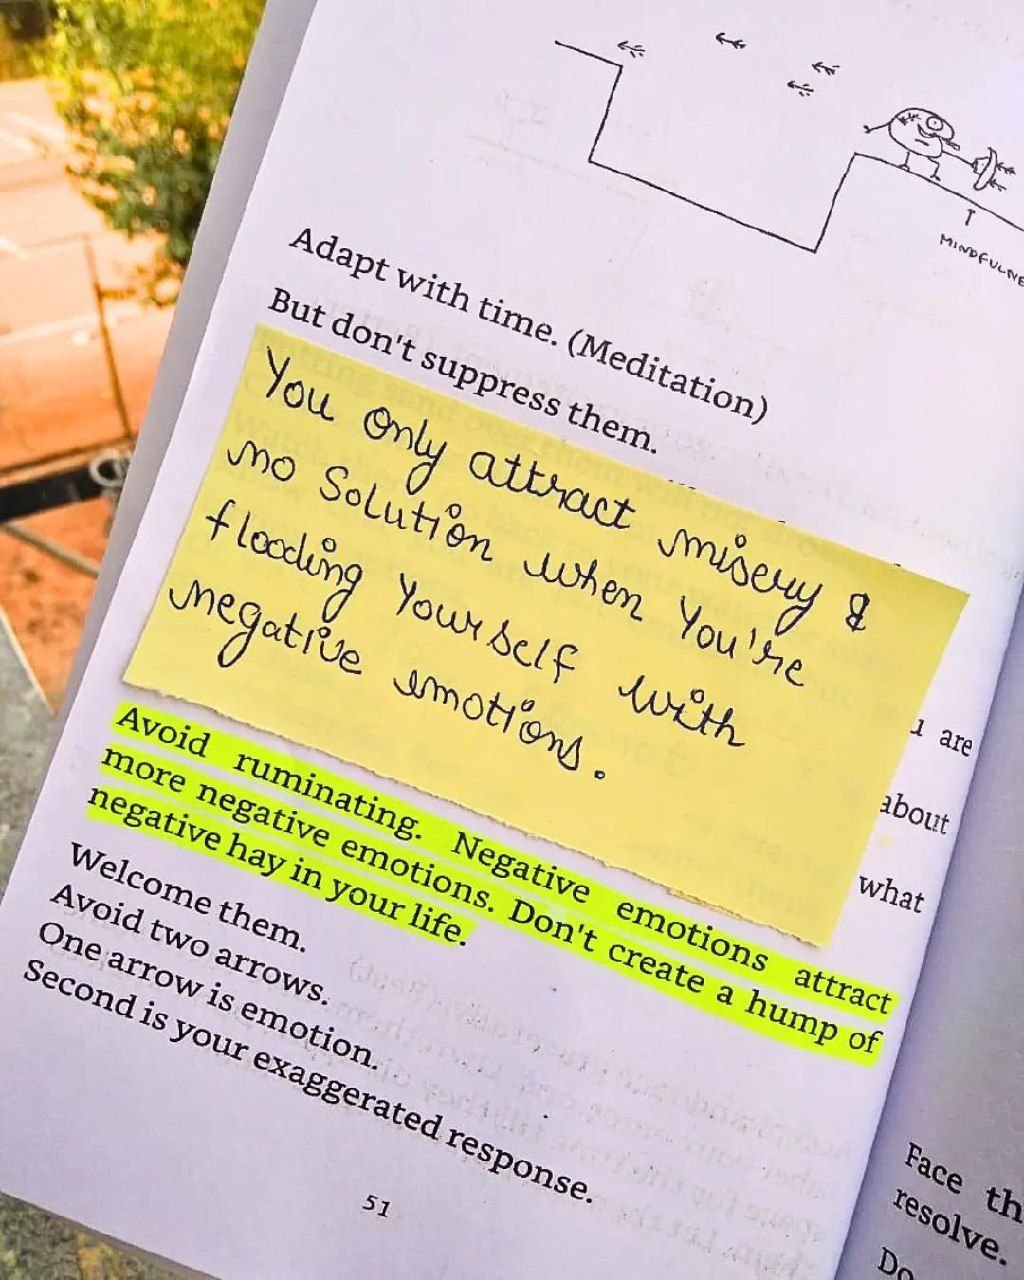 Adapt with time. (Meditation)
But don't suppress them.
You only attract misery &
no solution when you're
flooding yourself with
negative emotions.
are
about
what
Avoid ruminating. Negative emotions attract
more negative emotions. Don't create a hump of
negative hay in your life.
Welcome them.
Avoid two arrows.
One arrow is emotion.
Second is your exaggerated response.
51
Face
resolve.
Do